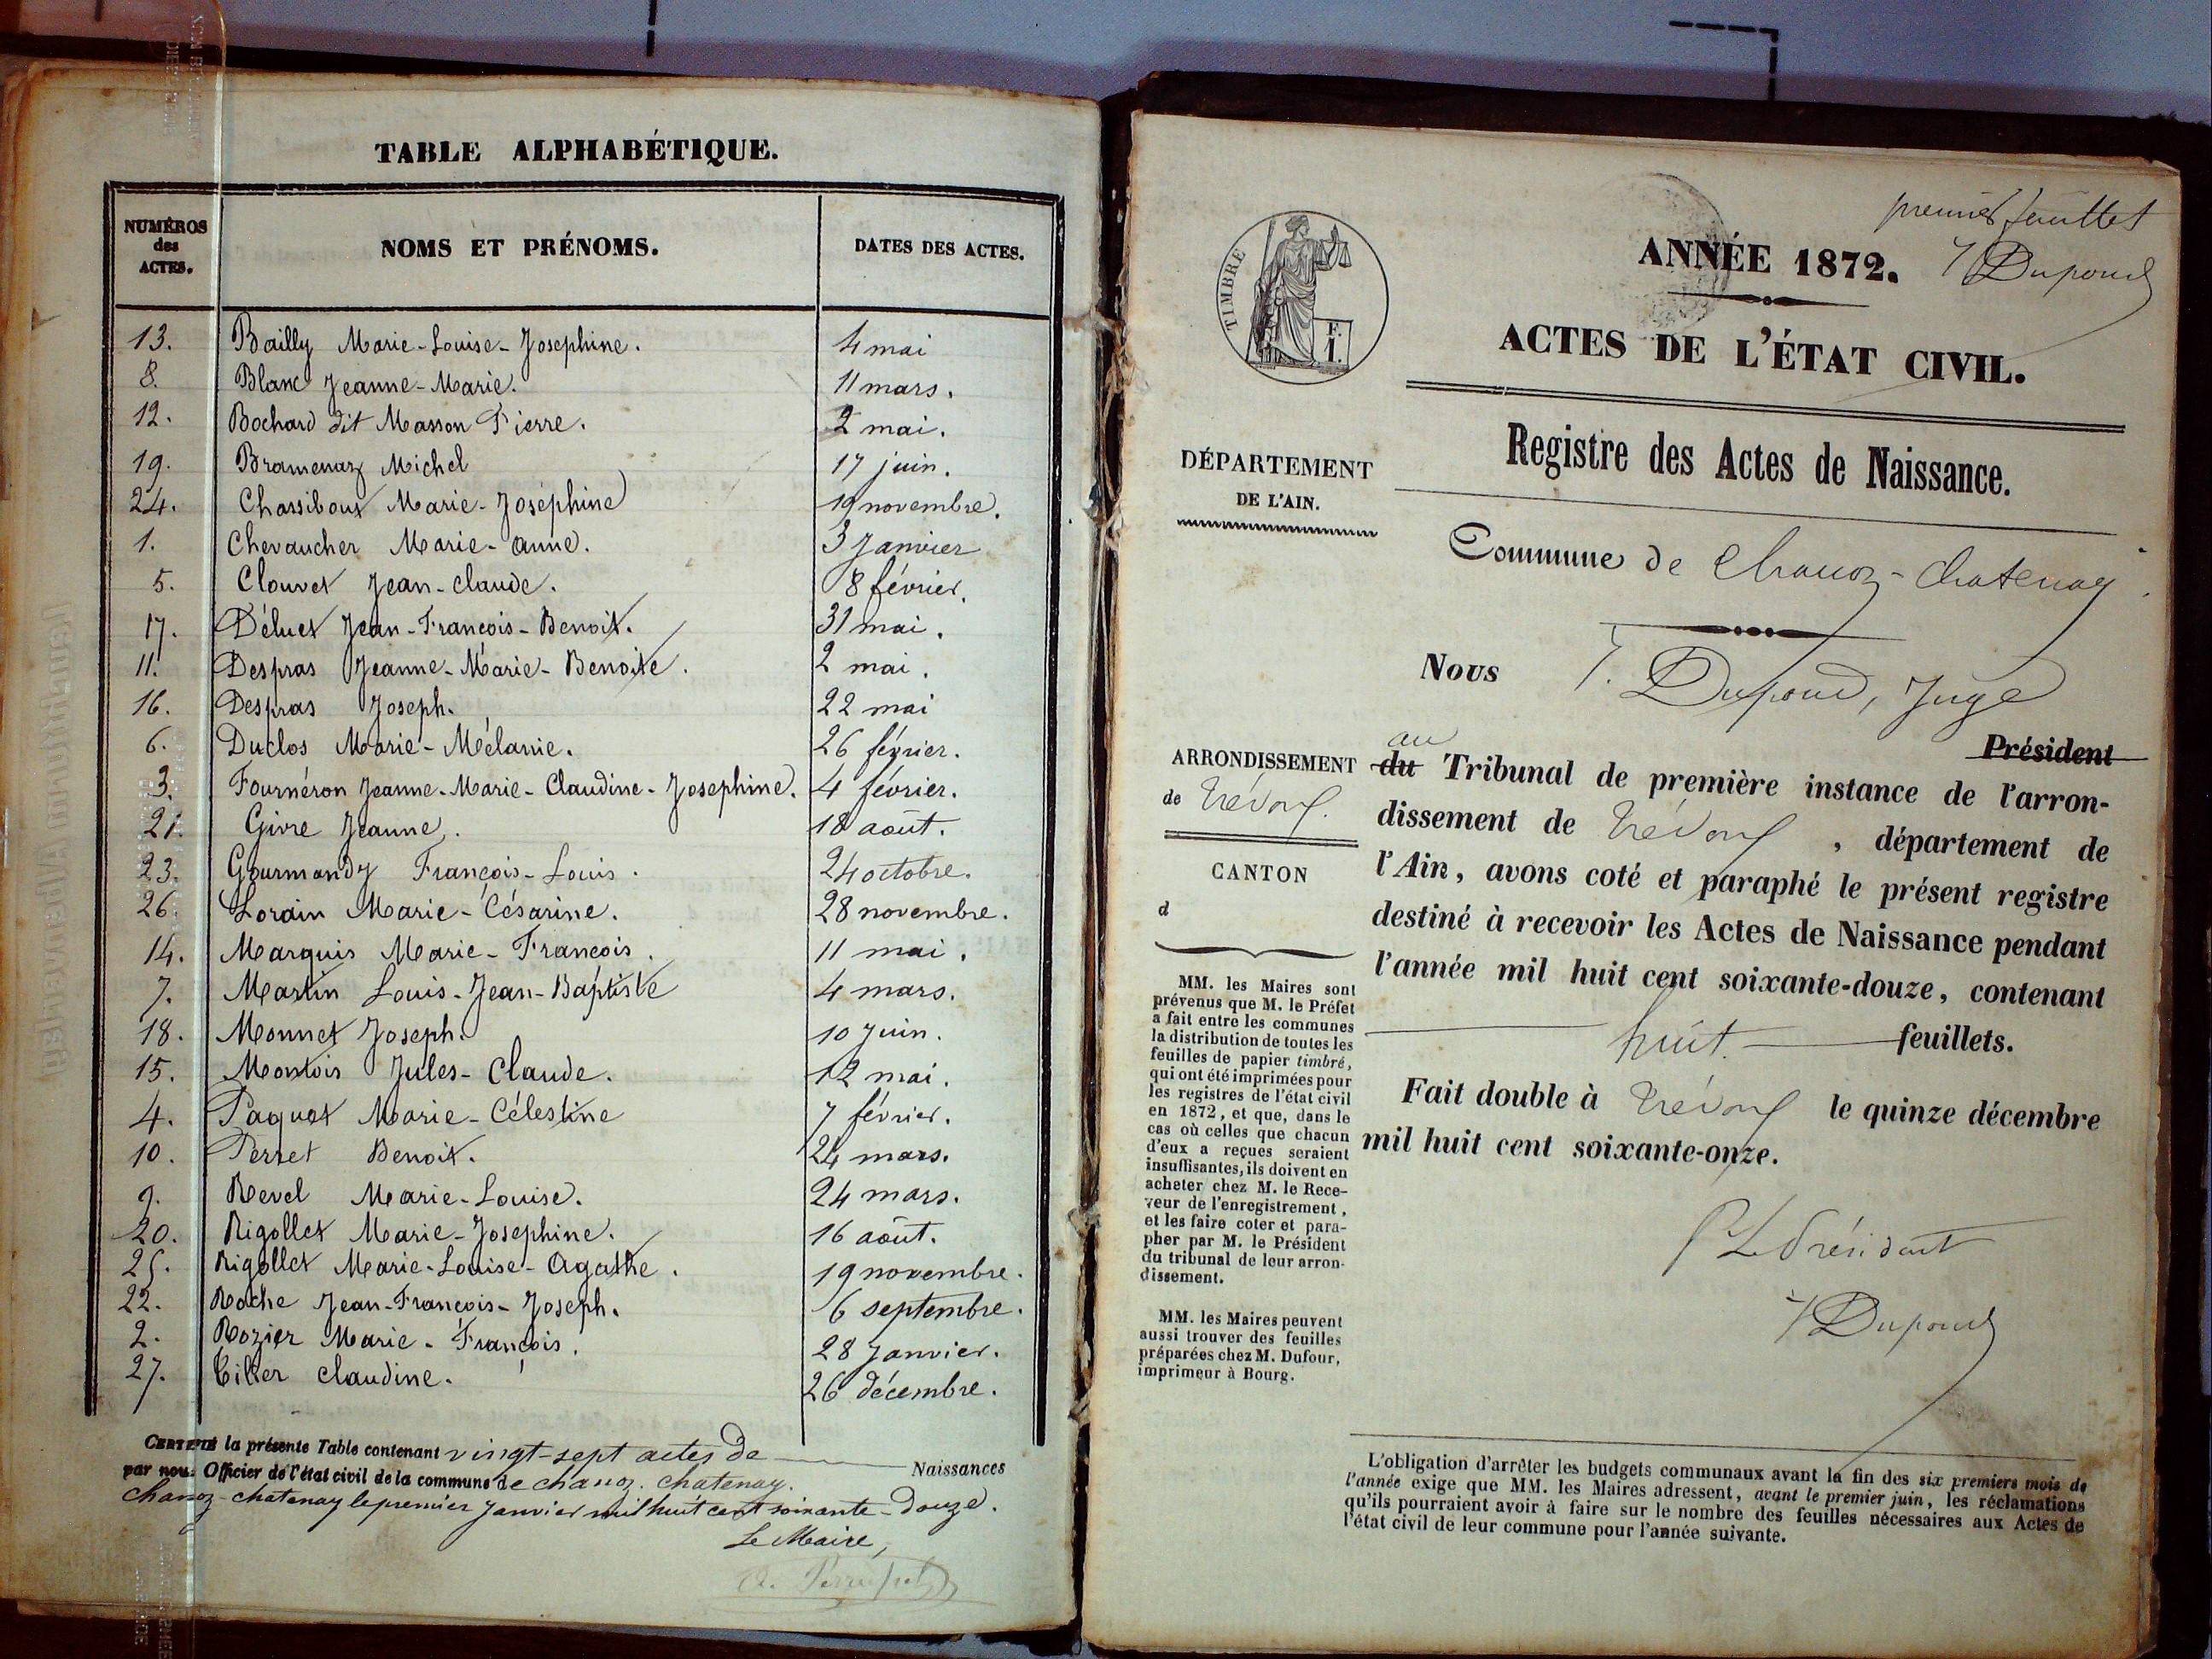 TABLE ALPHABÉTIQUE.
NUMÉROS des ACTES.
NOMS ET PRÉNOMS.
DATES DES ACTES.
13. Bailly Marie-Louise-Josephine. 4 mai
8. Blanc Jeanne-Marie. 11 mars.
12. Bochard dit Masson Pierre. 2 mai.
19. Bramenaz Michel 17 juin.
24. Chassiboux Marie-Joséphine 19 novembre.
1. Chevaucher Marie-Anne. 3 Janvier
5. Clouvet Jean-Claude. 8 février.
17. Déluet Jean-François-Benoit. 31 mai.
11. Despras Jeanne-Marie-Benoite. 2 mai.
16. Despras Joseph. 22 mai
6. Duclos Marie-Mélanie. 26 février.
3. Fournéron Jeanne-Marie-Claudine-Josephine. 4 février.
21. Givre Jeanne. 18 août.
23. Gourmandy François-Louis. 24 octobre.
26. Lorain Marie-Césarine. 28 novembre.
14. Marquis Marie-François. 11 mai.
7. Martin Louis-Jean-Baptiste 4 mars.
18. Monnet Joseph. 10 Juin.
15. Montois Jules-Claude. 12 mai.
4. Paquet Marie-Célestine 7 février.
10. Perret Benoit. 24 mars.
9. Revel Marie-Louise. 24 mars.
20. Rigollet Marie-Josephine. 16 août.
25. Rigollet Marie-Louise-Agathe. 19 novembre.
22. Roche Jean-François-Joseph. 6 septembre.
2. Rozier Marie-François. 28 Janvier.
27. Tilier Claudine. 26 décembre.
CERTIFIÉ la présente Table contenant vingt-sept actes de Naissances
par nous Officier de l'état civil de la commune de chanoz-chatenay.
Chanoz-chatenay le premier Janvier mil huit cent soixante-douze.
Le Maire,
premier feuillet
Dupond
TIMBRE
ANNÉE 1872.
ACTES DE L'ÉTAT CIVIL.
DÉPARTEMENT
DE L'AIN.
Registre des Actes de Naissance.
Commune de Chanoz-Chatenay
Nous T. Dupond, Juge
Président
ARRONDISSEMENT
de Trévoux.
CANTON
d
au
du Tribunal de première instance de l'arron-
dissement de Trévoux, département de
l'Ain, avons coté et paraphé le présent registre
destiné à recevoir les Actes de Naissance pendant
l'année mil huit cent soixante-douze, contenant
huit feuillets.
Fait double à Trévoux le quinze décembre
mil huit cent soixante-onze.
P. Le Président
Dupond
MM. les Maires sont
prévenus que M. le Préfet
a fait entre les communes
la distribution de toutes les
feuilles de papier timbré,
qui ont été imprimées pour
les registres de l'état civil
en 1872, et que, dans le
cas où celles que chacun
d'eux a reçues seraient
insuffisantes, ils doivent en
acheter chez M. le Rece-
veur de l'enregistrement,
et les faire coter et para-
pher par M. le Président
du tribunal de leur arron-
dissement.
MM. les Maires peuvent
aussi trouver des feuilles
préparées chez M. Dufour,
imprimeur à Bourg.
L'obligation d'arrêter les budgets communaux avant la fin des six premiers mois de
l'année exige que MM. les Maires adressent, avant le premier juin, les réclamations
qu'ils pourraient avoir à faire sur le nombre des feuilles nécessaires aux Actes de
l'état civil de leur commune pour l'année suivante.